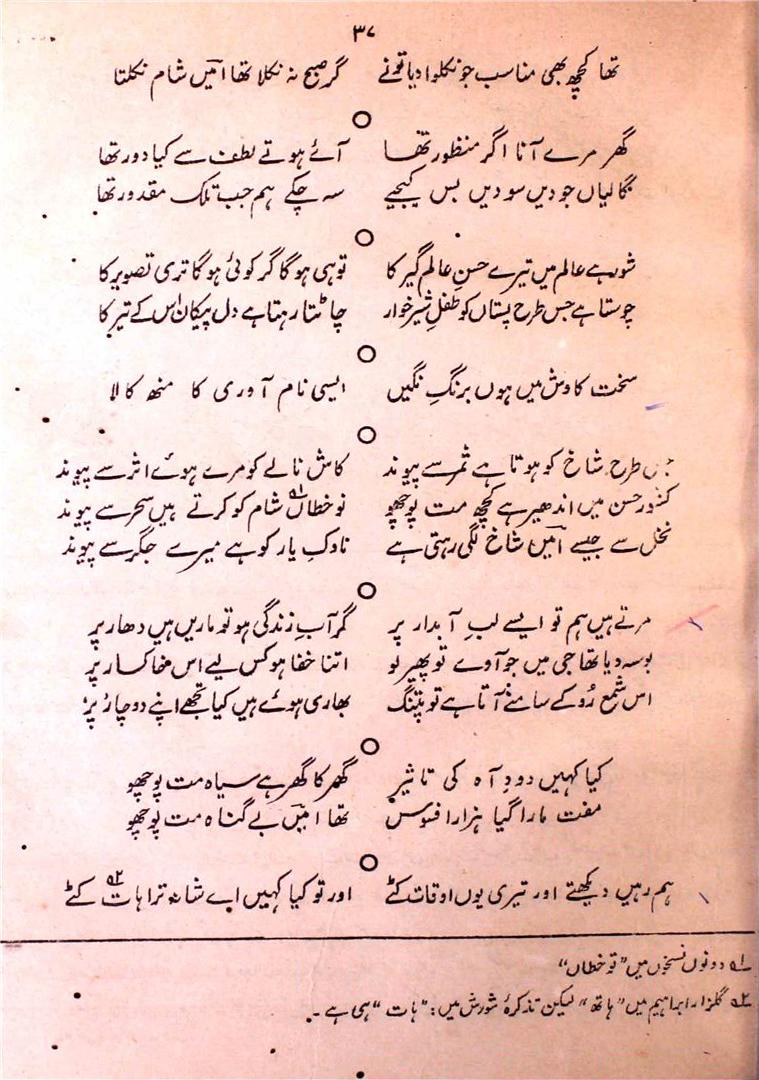 ۳۷
تھا کچھ بھی مناسب جو نکلوا دیا تونے گر صبح نہ نکلا تھا امیںؔ شام نکلتا
گھر مرے آنا اگر منظور تھا آئے ہوتے لطف سے کیا دور تھا
گالیاں جو دیں سو دیں بس کیجیے سہ چکے ہم جب تلک مقدور تھا
شور ہے عالم میں تیرے حسنِ عالم گیر کا تو ہی ہوگا گر کوئی ہوگا تری تصویر کا
چوستا ہے جس طرح پستاں کو طفلِ شیر خوار چاٹتا رہتا ہے دل پیکان اس کے تیر کا
سخت کاوش میں ہوں برنگِ نگیں ایسی نام آوری کا منھ کالا
جس طرح شاخ کو ہوتا ہے ثمر سے پیوند کاش نالے کو مرے ہوئے اثر سے پیوند
کشورِ حسن میں اندھیر ہے کچھ مت پوچھو نو خطاں۱؎ شام کو کرتے ہیں سحر سے پیوند
نخل سے جیسے امیںؔ شاخ لگی رہتی ہے ناوکِ یار کو ہے میرے جگر سے پیوند
مرتے ہیں ہم تو ایسے لبِ آبدار پر گر آبِ زندگی ہو تو ماریں ہیں دھار پر
بوسہ دیا تھا جی میں جو آوے تو پھیر لو اتنا خفا ہو کس لیے اس خاکسار پر
اس شمع رُو کے سامنے آتا ہے تو پتنگ بھاری ہوئے ہیں کیا تجھے اپنے دو چار پر
کیا کہیں دودِ آہ کی تاثیر گھر کا گھر ہے سیاہ مت پوچھو
مفت مارا گیا ہزار افسوس تھا امیںؔ بے گناہ مت پوچھو
ہم رہیں دیکھتے اور تیری یوں اوقات کٹے اور تو کیا کہیں اے شانہ ترا ہات۲؎ کٹے
۱؎ دونوں نسخوں میں "تو خطاں"
۲؎ گلزار ابراہیم میں "ہاتھ" لیکن تذکرۂ شورش میں: "ہات" ہی ہے ۔